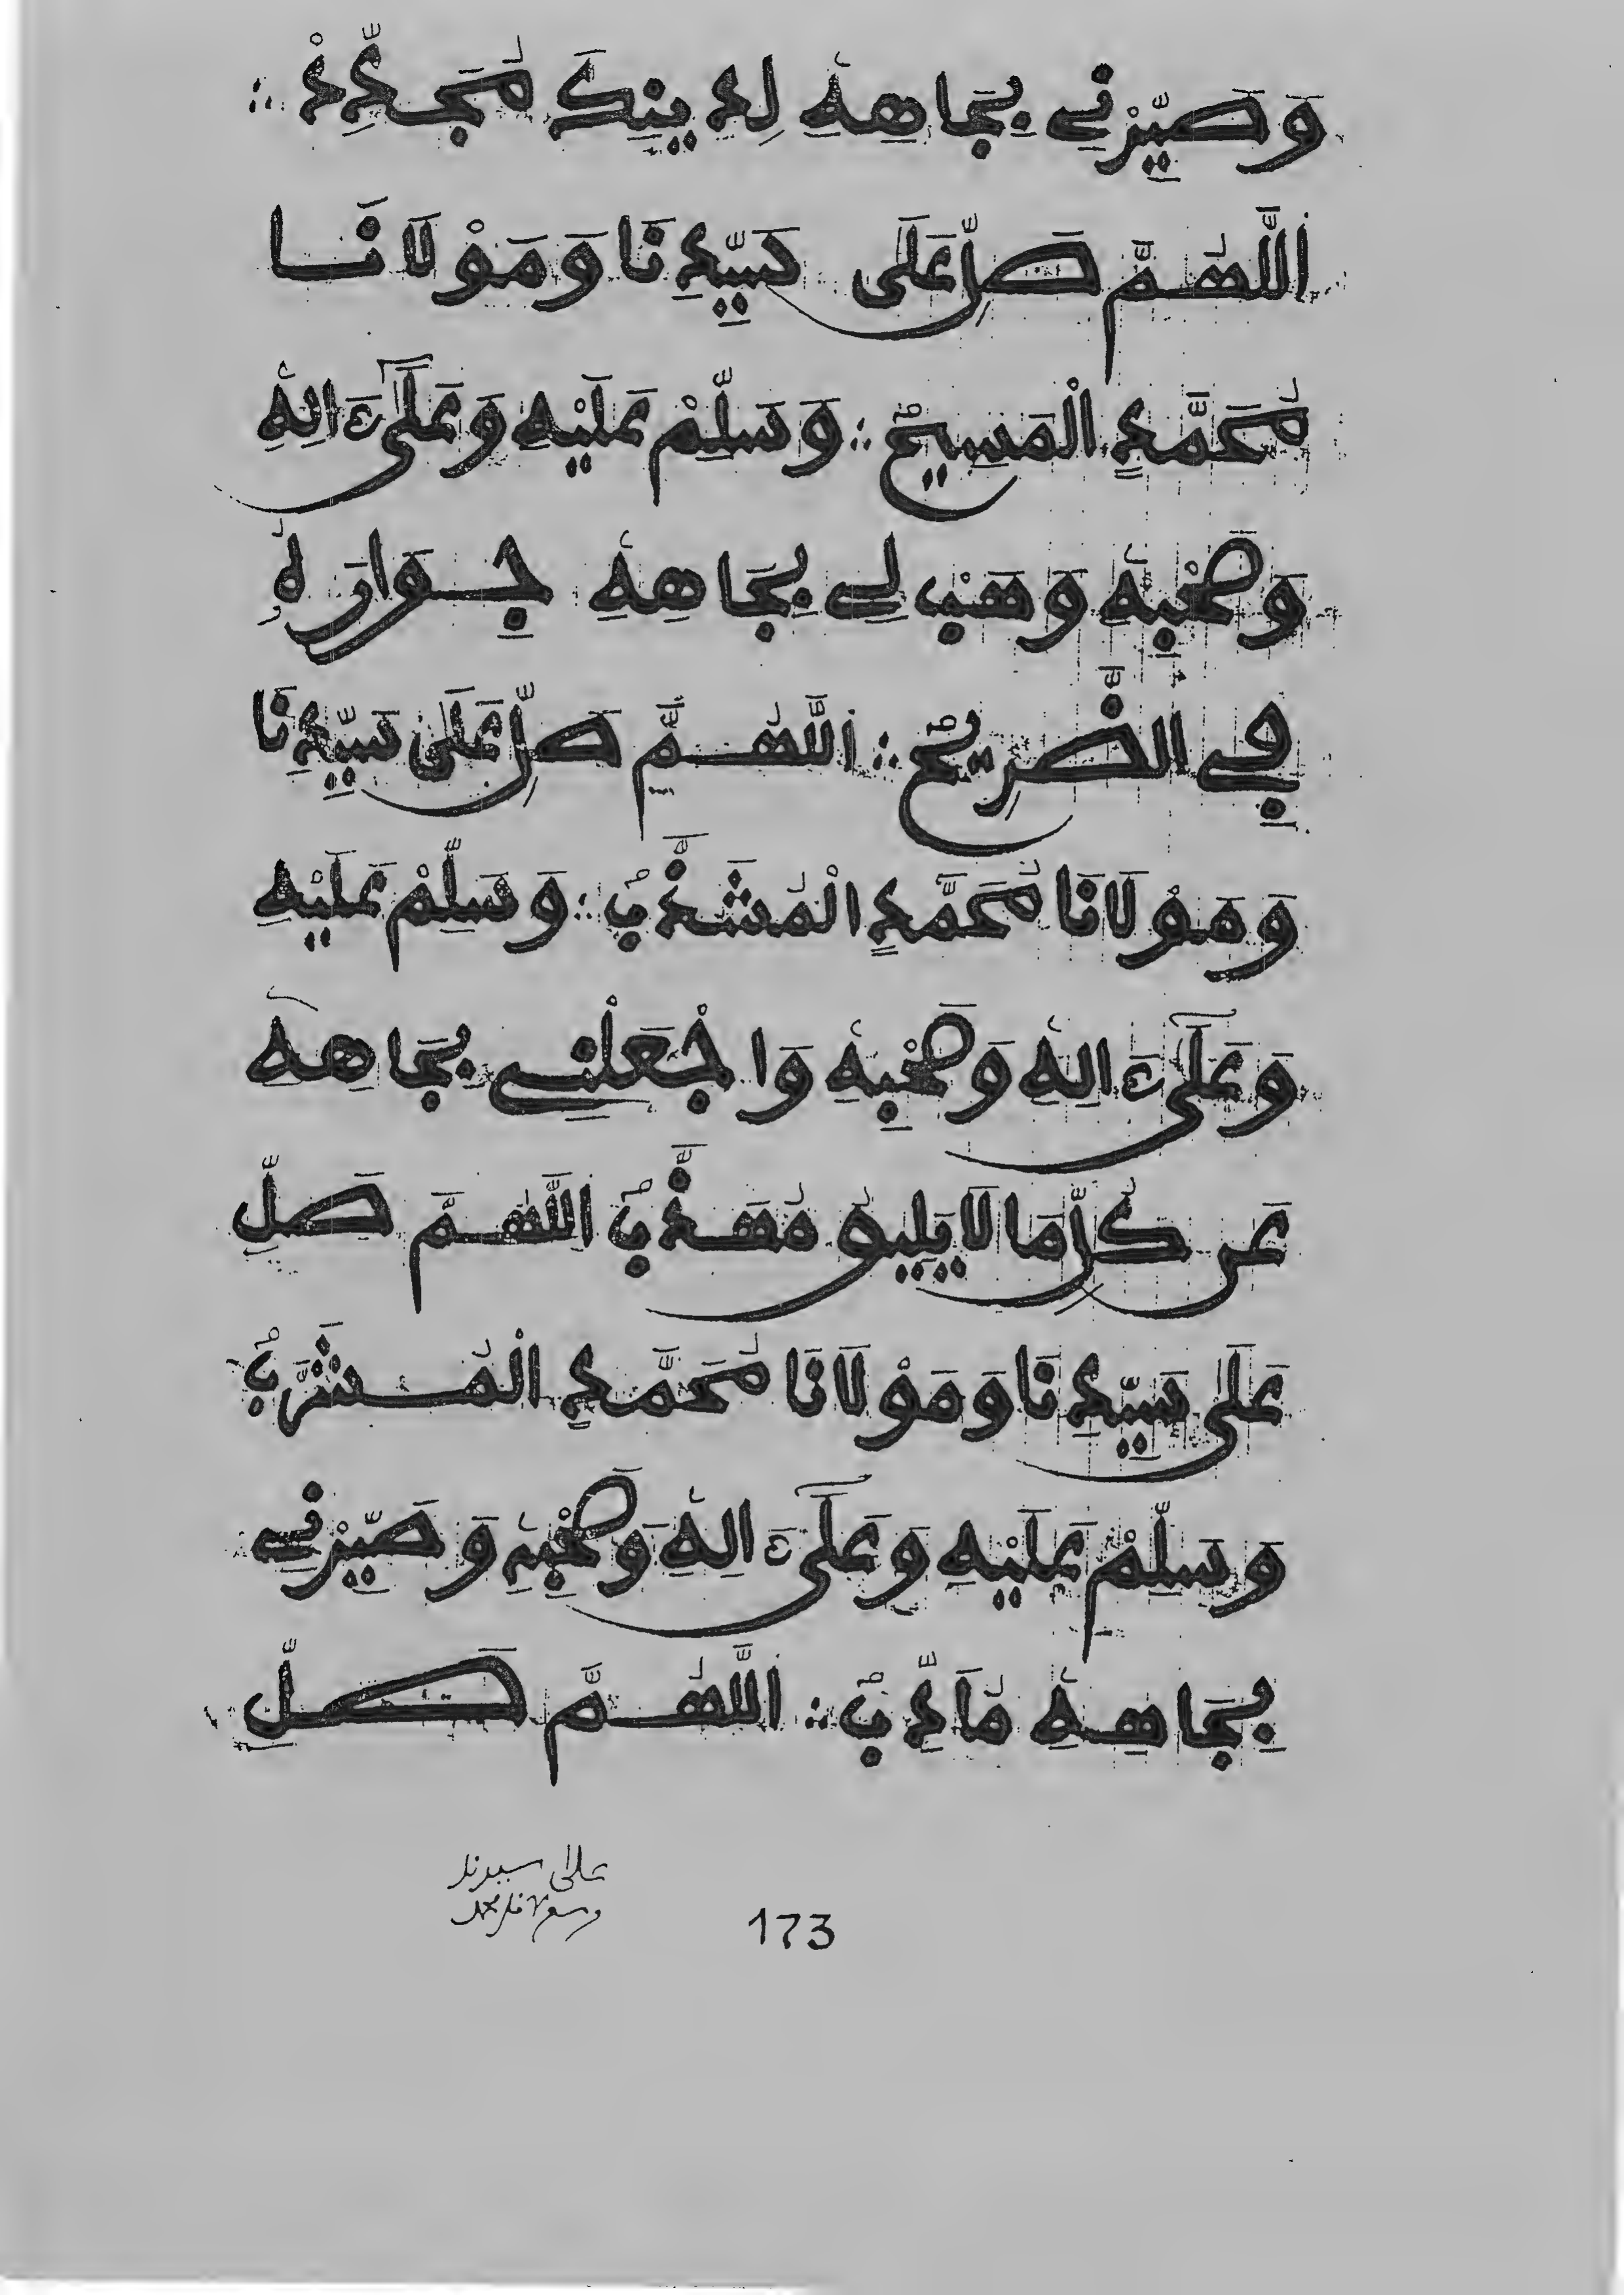 وَصَيِّرْنِے بِجَاهِهِۦ لِدِينِكَ مُجَدِّدْ ∴
اَللَّهُمَّ صَلِّ عَلَى سَيِّدِنَا وَمَوْلَانَا
مُحَمَّدٍ الْمَسِيحُ ∴ وَسَلِّمْ عَلَيْهِ وَعَلَىٰٓ ءَالِهِۦ
وَصَحْبِهِۦ وَهَبْ لِے بِجَاهِهِۦ جِوَارَهُۥ
فِے الضَّرِيحُ ∴ اَللَّهُمَّ صَلِّ عَلَى سَيِّدِنَا
وَمَوْلَانَا مُحَمَّدٍ الْمُشَذَّبُ ∴ وَسَلِّمْ عَلَيْهِ
وَعَلَىٰٓ ءَالِهِۦ وَصَحْبِهِۦ وَاجْعَلْنِے بِجَاهِهِۦ
عَن كُلِّ مَا لَا يَلِيقُ مُهَذَّبُ اَللَّهُمَّ صَلِّ
عَلَى سَيِّدِنَا وَمَوْلَانَا مُحَمَّدٍ الْمُشَرَّبُ
وَسَلِّمْ عَلَيْهِ وَعَلَىٰٓ ءَالِهِۦ وَصَحْبِهِۦ وَصَيِّرْنِے
بِجَاهِهِۦ مُأَدِّبُ ∴ اَللَّهُمَّ صَلِّ
على سيدنا
ومولانا محمد
173